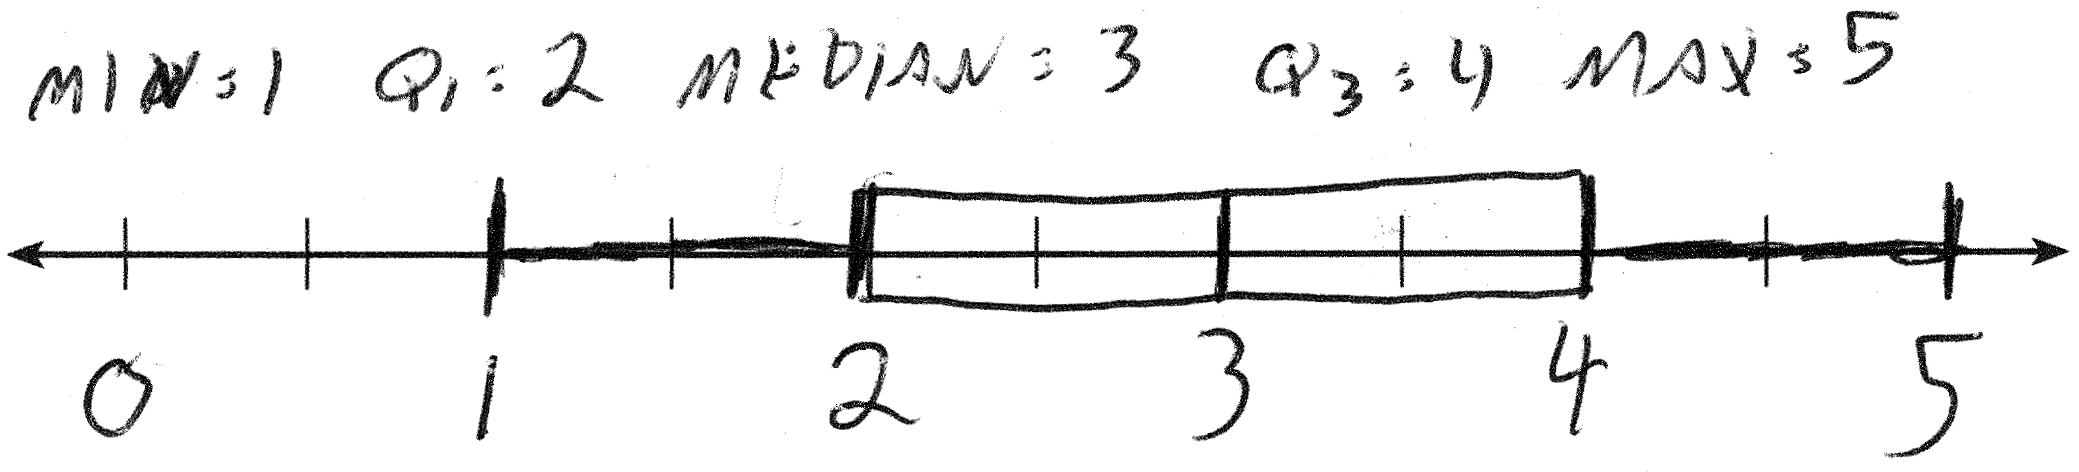 MIN = 1 Q1 = 2 MEDIAN = 3 Q3 = 4 MAX = 5
0 1 2 3 4 5